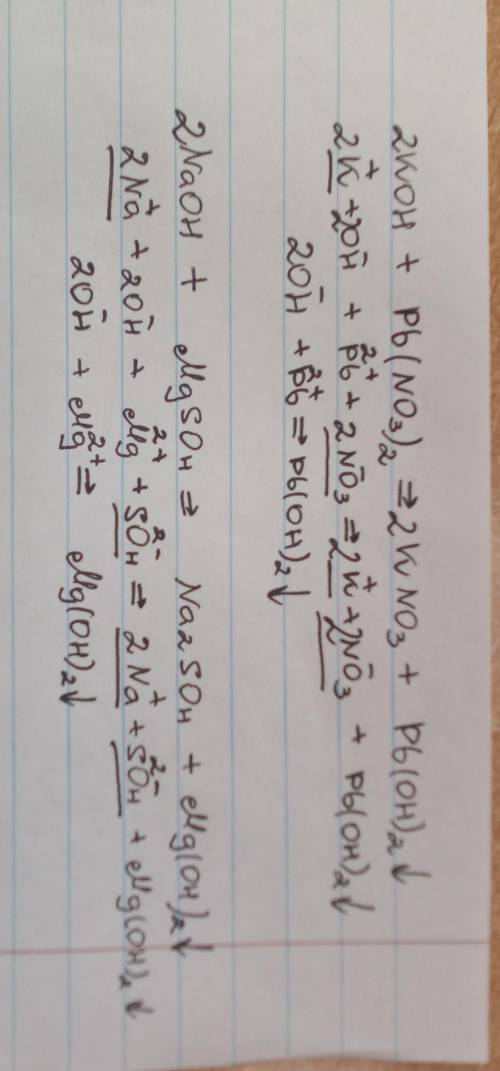 2KOH + Pb(NO₃)₂ ⇒ 2KNO₃ + Pb(OH)₂↓
2K⁺ + 2OH⁻ + Pb²⁺ + 2NO₃⁻ ⇒ 2K⁺ + 2NO₃⁻ + Pb(OH)₂↓
2OH⁻ + Pb²⁺ ⇒ Pb(OH)₂↓
2NaOH + MgSO₄ ⇒ Na₂SO₄ + Mg(OH)₂↓
2Na⁺ + 2OH⁻ + Mg²⁺ + SO₄²⁻ ⇒ 2Na⁺ + SO₄²⁻ + Mg(OH)₂↓
2OH⁻ + Mg²⁺ ⇒ Mg(OH)₂↓